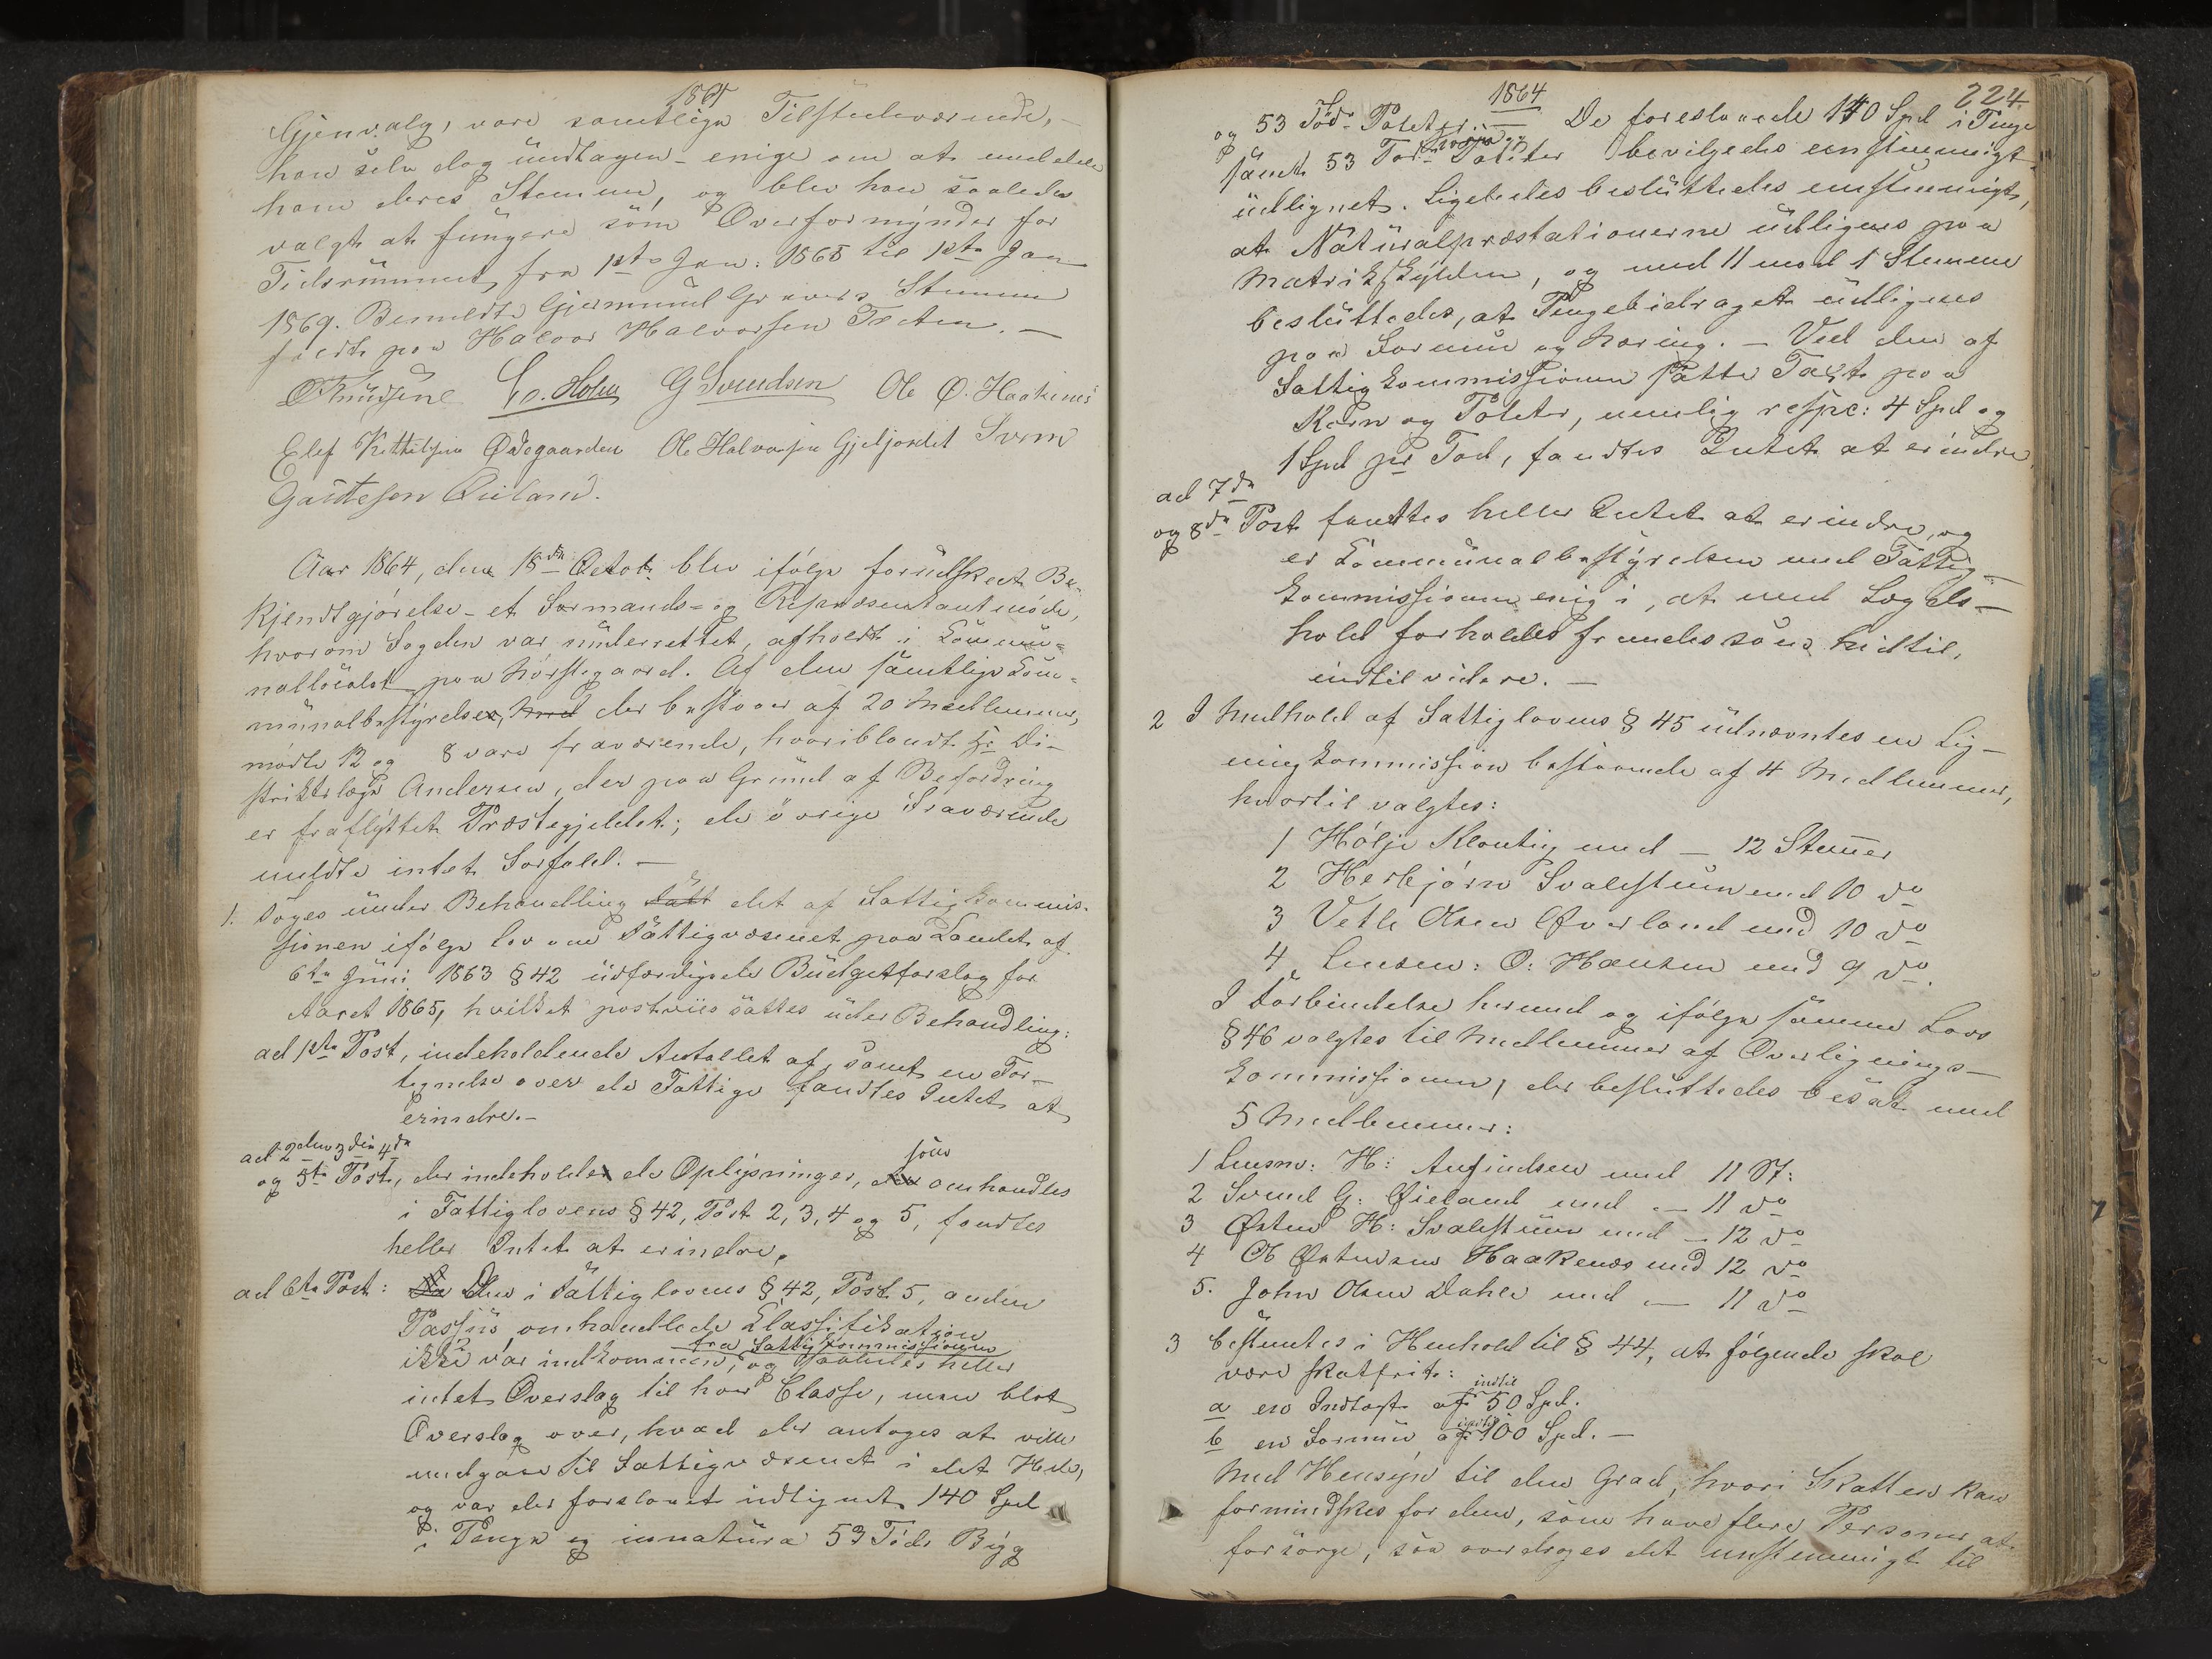 1864
Gjenvalg, vare samtlige Tilstedeværende, –
han selv dog undtagen – enige om at meddele
ham deres Stemme, og blev han saaledes
valgt at fungere som Overformynder for
Tidsrummet fra 1ste Jan: 1865 til 1ste Jan
1869. Bemeldte Gjermund Gravers Stemme
faldt paa Halvor Halvorsen Tveten. –
G Svendsen Ole Ø. Haakenes
Elef Kittilsen Ødegaarden Ole Halvorsen Gjeljordet Svend
Gautesen Øieland.
Aar 1864, den 18de Octobr blev ifølge forudskeet Be-
kjendtgjørelse – et Formands- og Repræsentantmøde,
hvorom Fogden var underrettet, afholdt i Kommu-
nallocalet paa Nørstegaard. Af den samtlige Kom-
munalbestyrelse, med der bestaar af 20 Medlemmer,
mødte 12 og 8 vare fraværende, hvoriblandt Hr Di-
striktslæge Andersen, der paa Grund af Befordring
er fraflyttet Præstegjeldet; de øvrige Fraværende
meldte intet Forfald. –
1. Toges under Behandling det af Fattigkommis-
sjonen ifølge Lov om Fattigvæsenet paa Landet af
6te Juni 1863 § 42 udfærdigede Budgetforslag for
Aaret 1865, hvilket postviis sattes under Behandling:
ad 1ste Post, indeholdende Antallet af, samt en For-
tegnelse over de Fattige fandtes Intet at
erindre. –
ad 2den 3die 4de
og 5te Post, der indeholder de Oplysninger, der som omhandles
i Fattiglovens § 42, Post 2, 3, 4 og 5, fandtes
heller Intet at erindre.
ad 6te Post: Da Den i Fattiglovens § 42, Post 5, anden
Passus omhandlede Klassifikation
ikke var indkommen fra Fattigkommissionen, og saaledes heller
intet Overslag til hver Classe, men blot
Overslag over, hvad der antoges at ville
medgaae til Fattigvæsenet i det Hele,
og var der foreslaaet udlignet 140 Spd
i Penge og innatura 53 Tdr Byg
1864
224
og 53 Tdr Poteter. – De foreslaaede 140 Spd i Penge
samt 53 Tdr Korn og Poteter bevilgedes eenstemmigt
udlignet. Ligeledes besluttedes enstemmigt,
at Naturalpræstationerne udlignes paa
Matrikskylden, og med 11 mod 1 Stemme
besluttedes, at Pengebidraget udlignes
paa Formue og Næring. – Ved den af
Fattigkommissionen satte Taxt paa
Korn og Poteter, nemlig respc: 4 Spd og
1 Spd pr Tød, fandtes Intet at erindre.
ad 7de
og 8de Post fandtes heller Intet at erindre, og
er Kommunalbestyrelsen med Fattig-
kommissionen enig i, at med Lægds-
hold forholdes fremdeles som hidtil,
indtil videre. –
2 I Medhold af Fattiglovens § 45 udnævntes en Lig-
ningkommission bestaaende af 4 Medlemmer,
hvortil valgtes:
1 Hølje Kleutig med – 12 Stemmer
2 Herbjørn Svalestuen med 10 do
3 Vetle Olsen Øverland med 10 do
4 Lensm: O: Hansen med 9 do.
I Forbindelse hermed og ifølge samme Lovs
§ 46 valgtes til Medlemmer af Overlignings-
kommissionen, der besluttedes besat med
5 Medlemmer:
1 Lensm: H: Anfindsen med 11 St:
2 Svend G: Øieland med – 11 do
3 Østen H: Svalestuen med – 12 do
4 Ole Østensen Haakenes med 12 do
5. John Olsen Dahle med – 11 do
3 bestemtes i Henhold til § 44, at følgende skal
være skatfrit:
a en Indtægt af indtil 50 Spd.
b en Formue af indtil 100 Spd. –
Med Hensyn til den Grad, hvori Skatten kan
formindskes for dem, som have flere Personer at
forsørge, saa overdroges det enstemmigt til